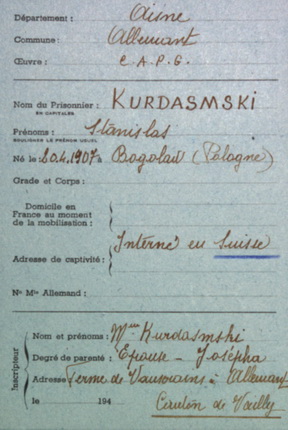 Département : Aisne
Commune : Allemant
Œuvre : C.A.P.G.
Nom du Prisonnier : KURDASMSKI
EN CAPITALES
Prénoms : Stanislas
SOULIGNER LE PRÉNOM USUEL
Né le : 20.4.1907 à Bogolau (Pologne)
Grade et Corps :
Domicile en
France au moment
de la mobilisation :
Interné en Suisse
Adresse de captivité :
No Mle Allemand :
Inscripteur
Nom et prénoms : Mme Kurdasmski
Degré de parenté : Epouse - Josépha
Adresse Ferme de Vaurains à Allemant
le 194 Canton de Vailly